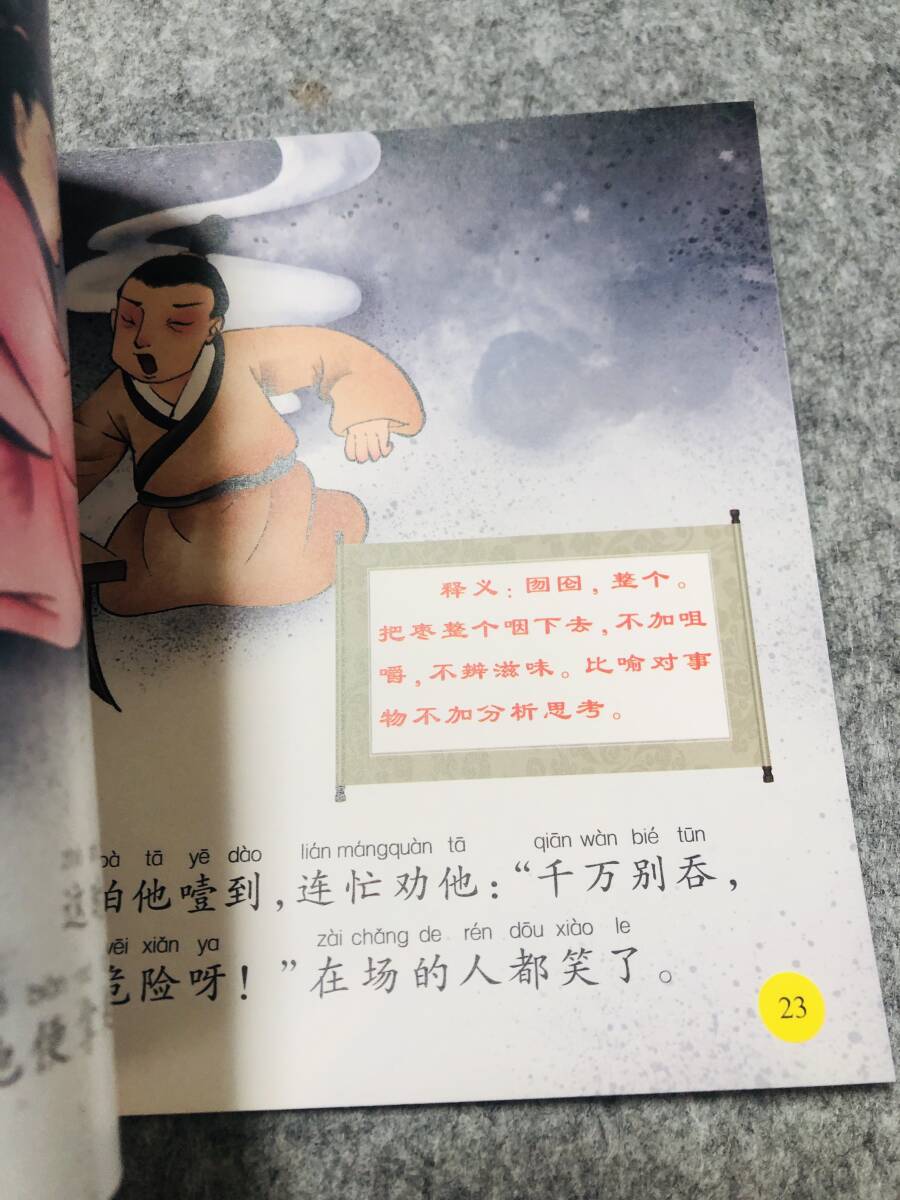 释义：囫囵，整个。
把枣整个咽下去，不加咀
嚼，不辨滋味。比喻对事
物不加分析思考。
pà tā yē dào lián mángquàn tā qiān wàn bié tūn
怕他噎到，连忙劝他：“千万别吞，
wēi xiǎn ya zài chǎng de rén dōu xiào le
危险呀！”在场的人都笑了。
23
也便